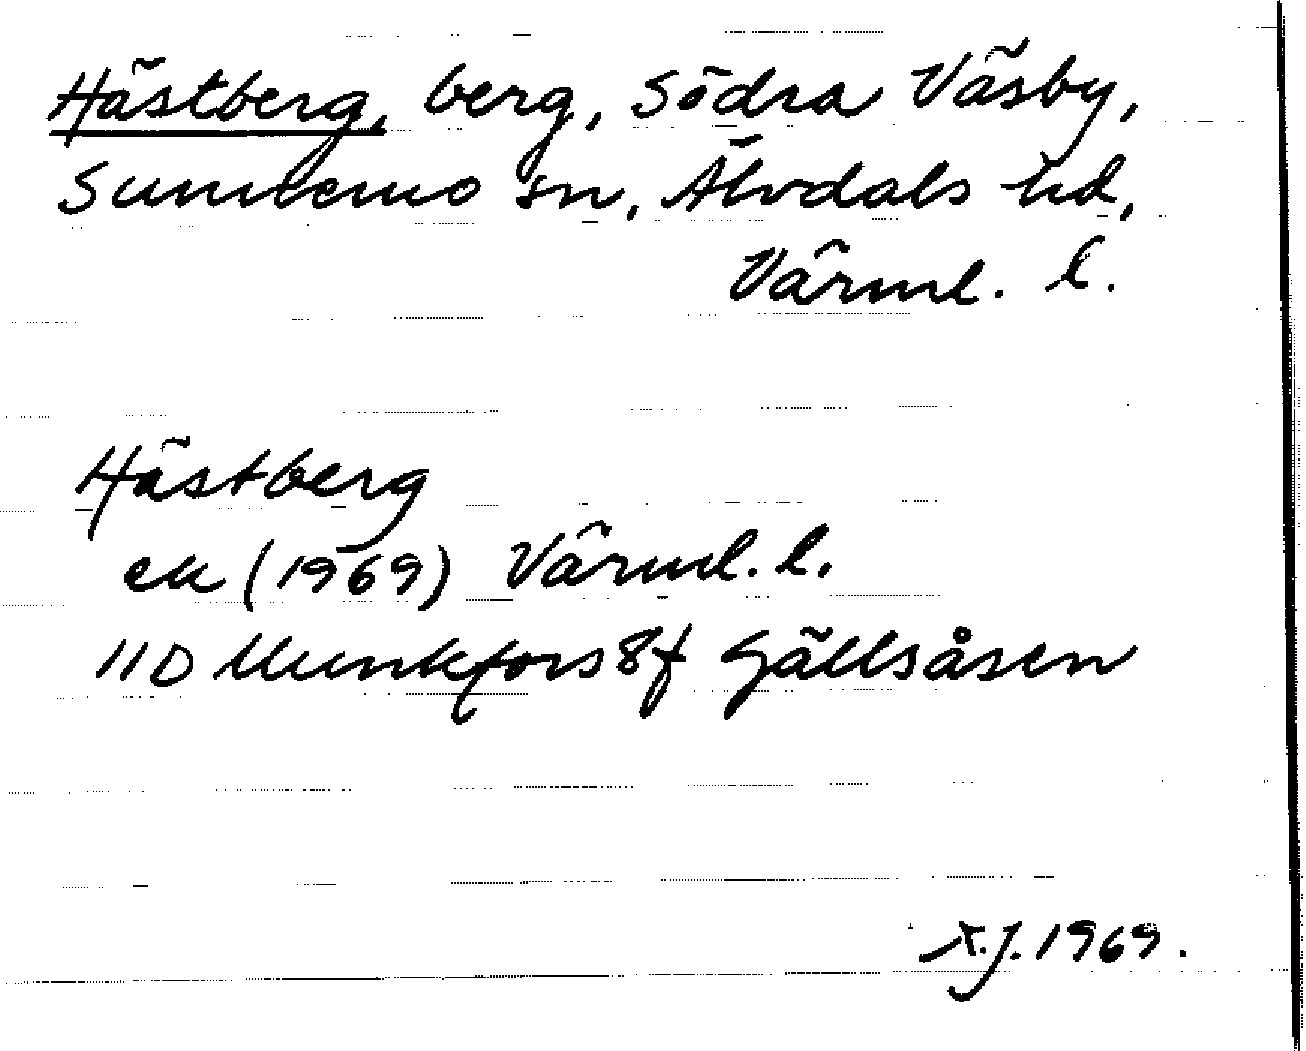 Hästberg, berg, Södra Väsby,
Sunnemo sn, Älvdals hd,
Värml. l.
Hästberg
ek (1969) Värml. l.
11D Munkfors 8f Gällsåsen
X.J. 1969.